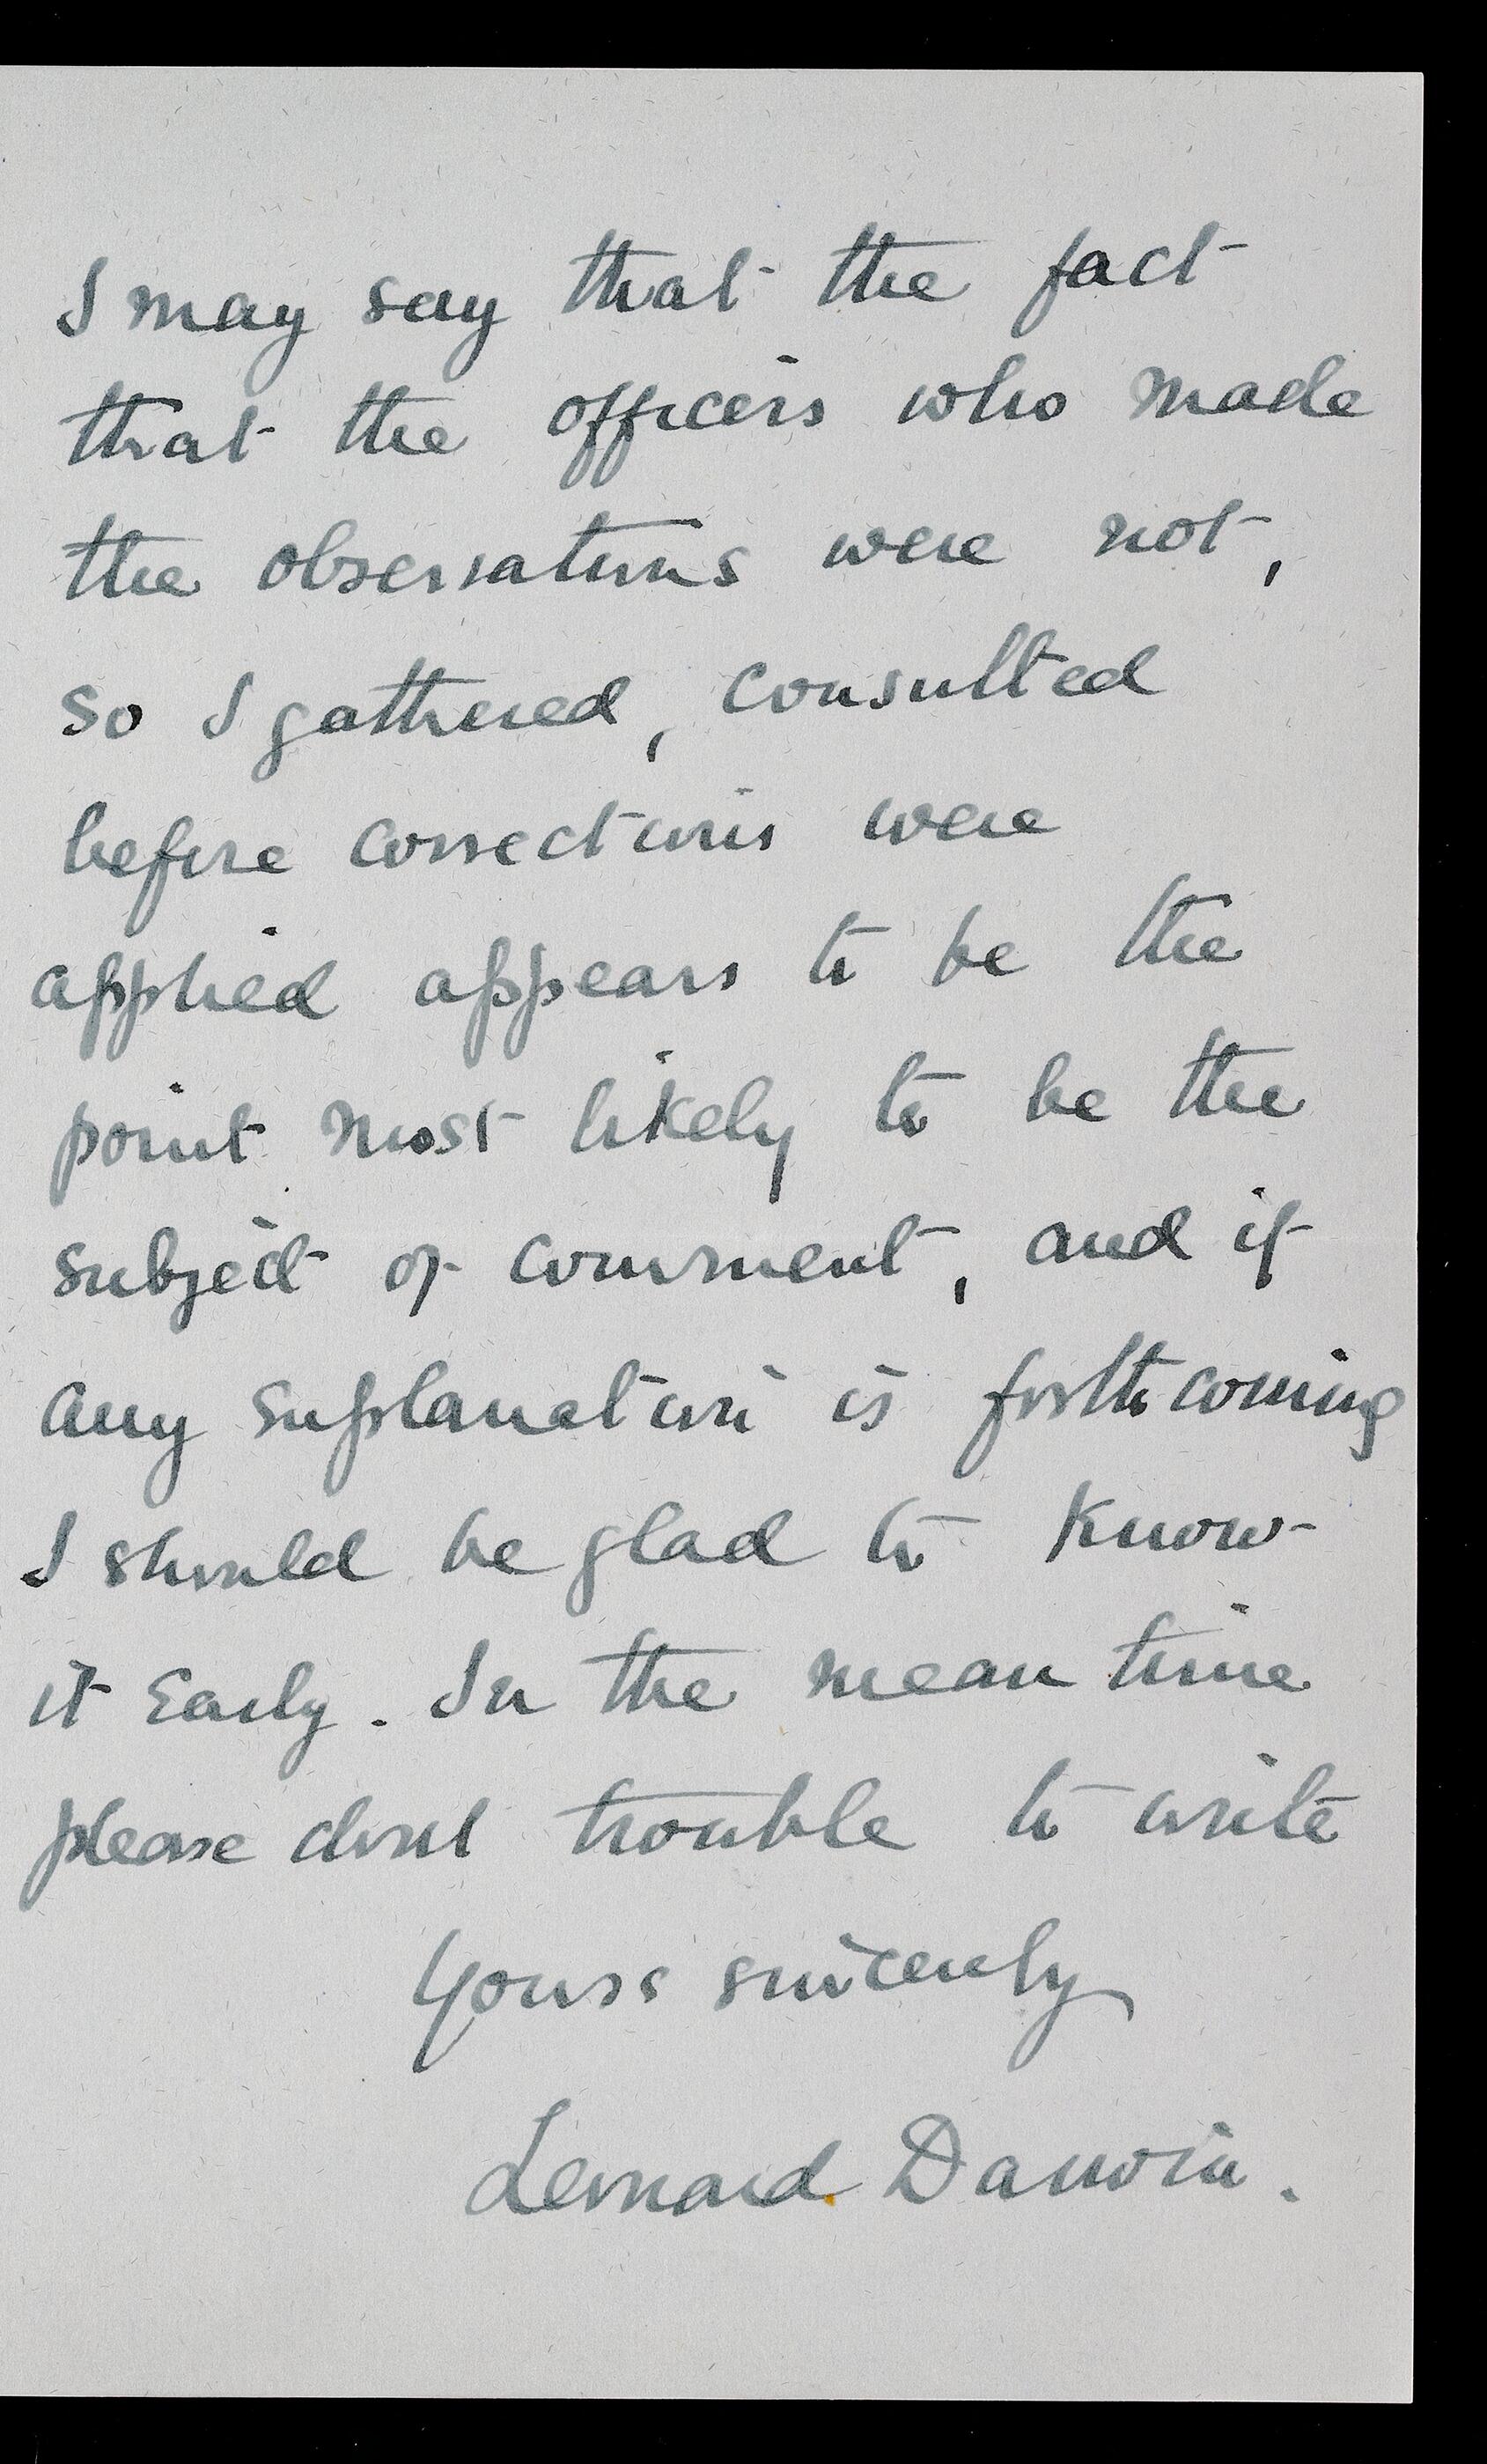 I may say that the fact
that the officers who made
the observations were not,
so I gathered, consulted
before corrections were
applied appears to be the
point most likely to be the
subject of comment, and if
any explanation is forthcoming
I should be glad to know
it early. In the mean time
please dont trouble to write
Yours sincerely
Leonard Darwin.